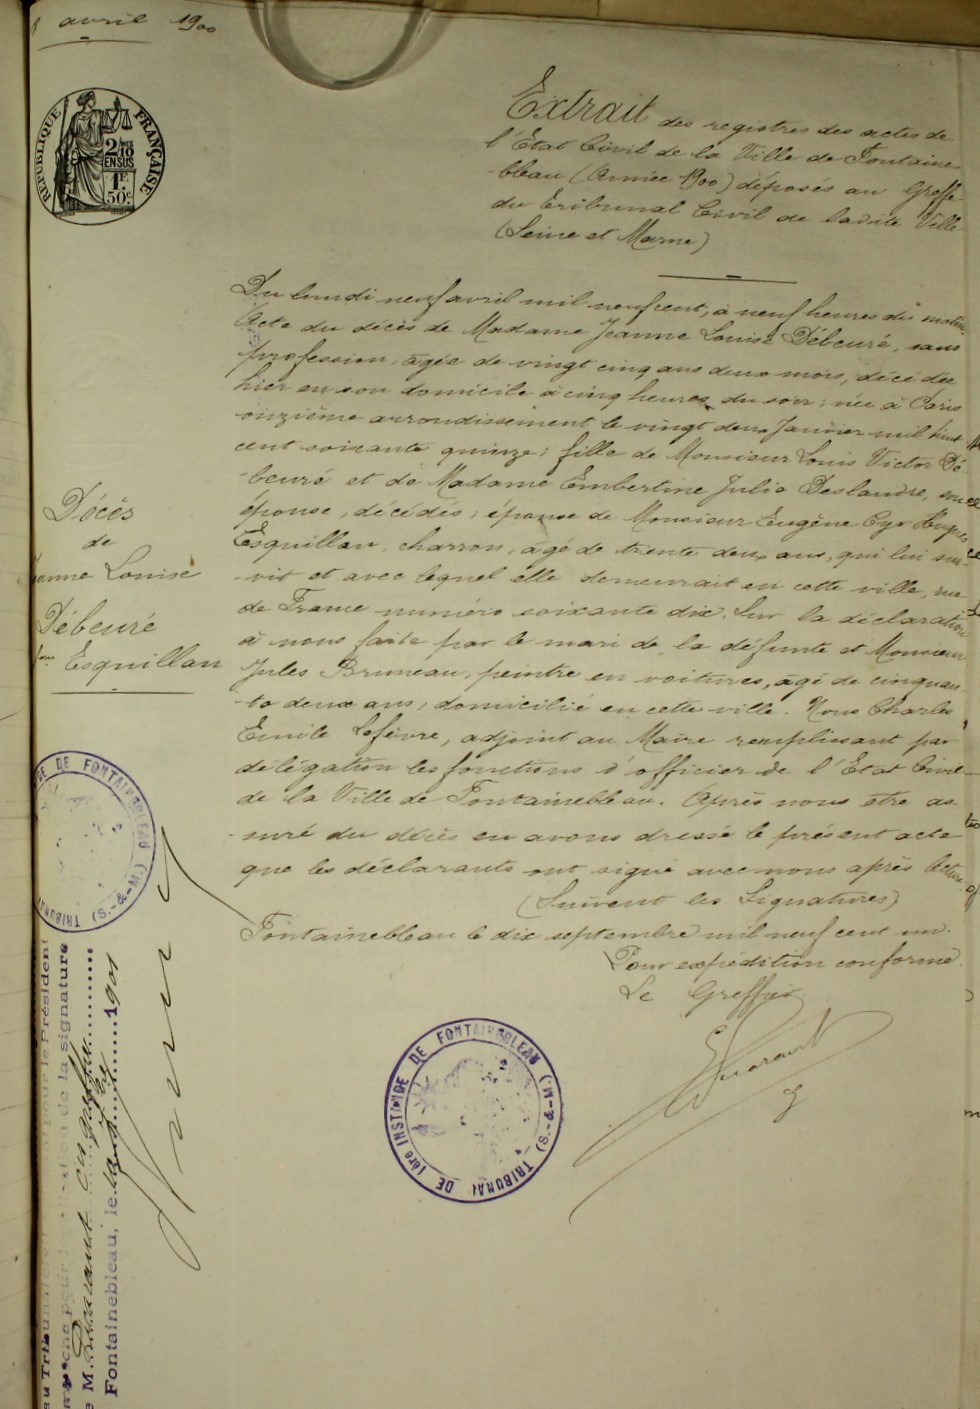 avril 1900
RÉPUBLIQUE FRANÇAISE
2/10
EN SUS
1F
50c
Extrait des registres des actes de
l'Etat Civil de la Ville de Fontaine-
-bleau (Année 1900) déposés au Greffe
du Tribunal Civil de ladite Ville
(Seine et Marne)
Du lundi neuf avril mil neuf cent, à neuf heures du matin.
Acte du décès de Madame Jeanne Louise Débeuré, sans
profession, âgée de vingt cinq ans deux mois, décédée
hier en son domicile à cinq heures du soir; née à Paris
onzième arrondissement le vingt deux Janvier mil huit
cent soixante quinze; fille de Monsieur Louis Victor Dé-
-beuré et de Madame Embertine Julie Deslandre, son
épouse, décédés; épouse de Monsieur Eugène Cyr Hugues
Esquillan, charron, âgé de trente deux ans, qui lui sur-
-vit et avec lequel elle demeurait en cette ville, rue
de France numéro soixante dix. Sur la déclaration
à nous faite par le mari de la défunte et Monsieur
Jules Bruneau, peintre en voitures, âgé de cinquan-
-te deux ans, domicilié en cette ville. Nous Charles
Emile Lefèvre, adjoint au Maire remplissant par
délégation les fonctions d'officier de l'Etat Civil
de la Ville de Fontainebleau. Après nous être as-
-suré du décès en avons dressé le présent acte
que les déclarants ont signé avec nous après lecture.
(Suivent les Signatures)
Fontainebleau le dix septembre mil neuf cent un.
Pour expédition conforme
Le Greffier
Décès
de
Jeanne Louise
Débeuré
fme Esquillan
DE FONTAINEBLEAU (S.-&-M.) TRIBUNAL
TRIBUNAL DE 1ère INSTANCE DE FONTAINEBLEAU (S.-&-M.)
au Tribunal pour le Président
de la signature
de M.
Fontainebleau, le 1901